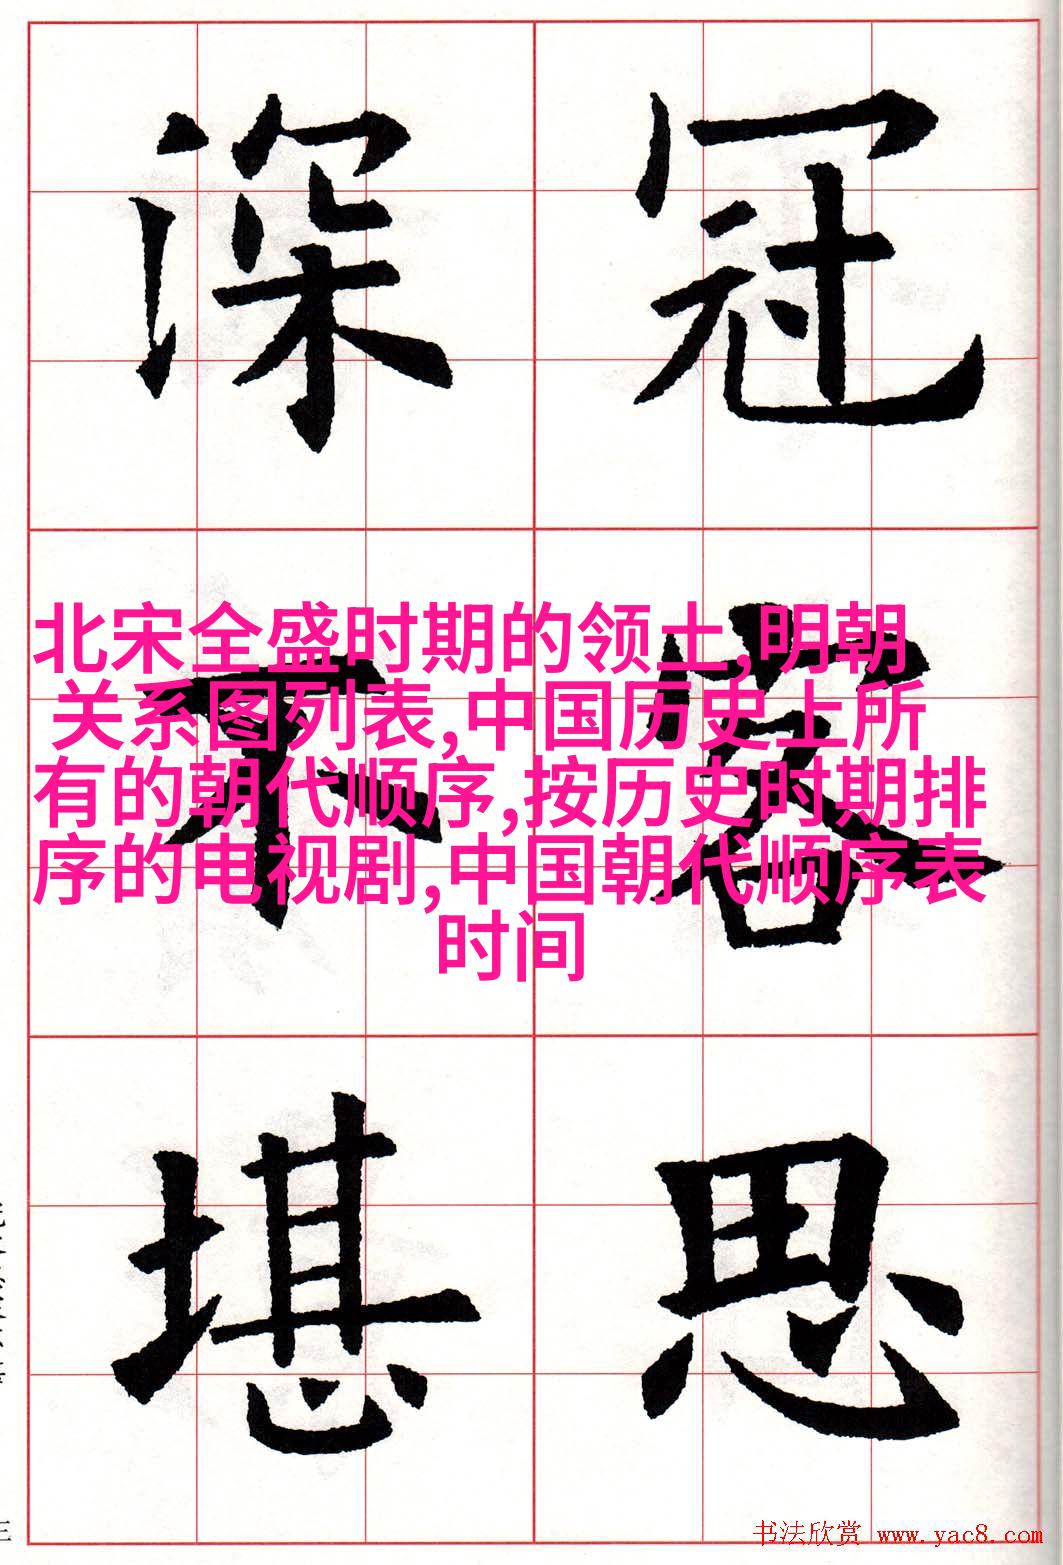 深 冠
不 容
堪 思
北宋全盛时期的领土,明朝
关系图列表,中国历史上所
有的朝代顺序,按历史时期排
序的电视剧,中国朝代顺序表
时间
书法欣赏 www.yac8.com